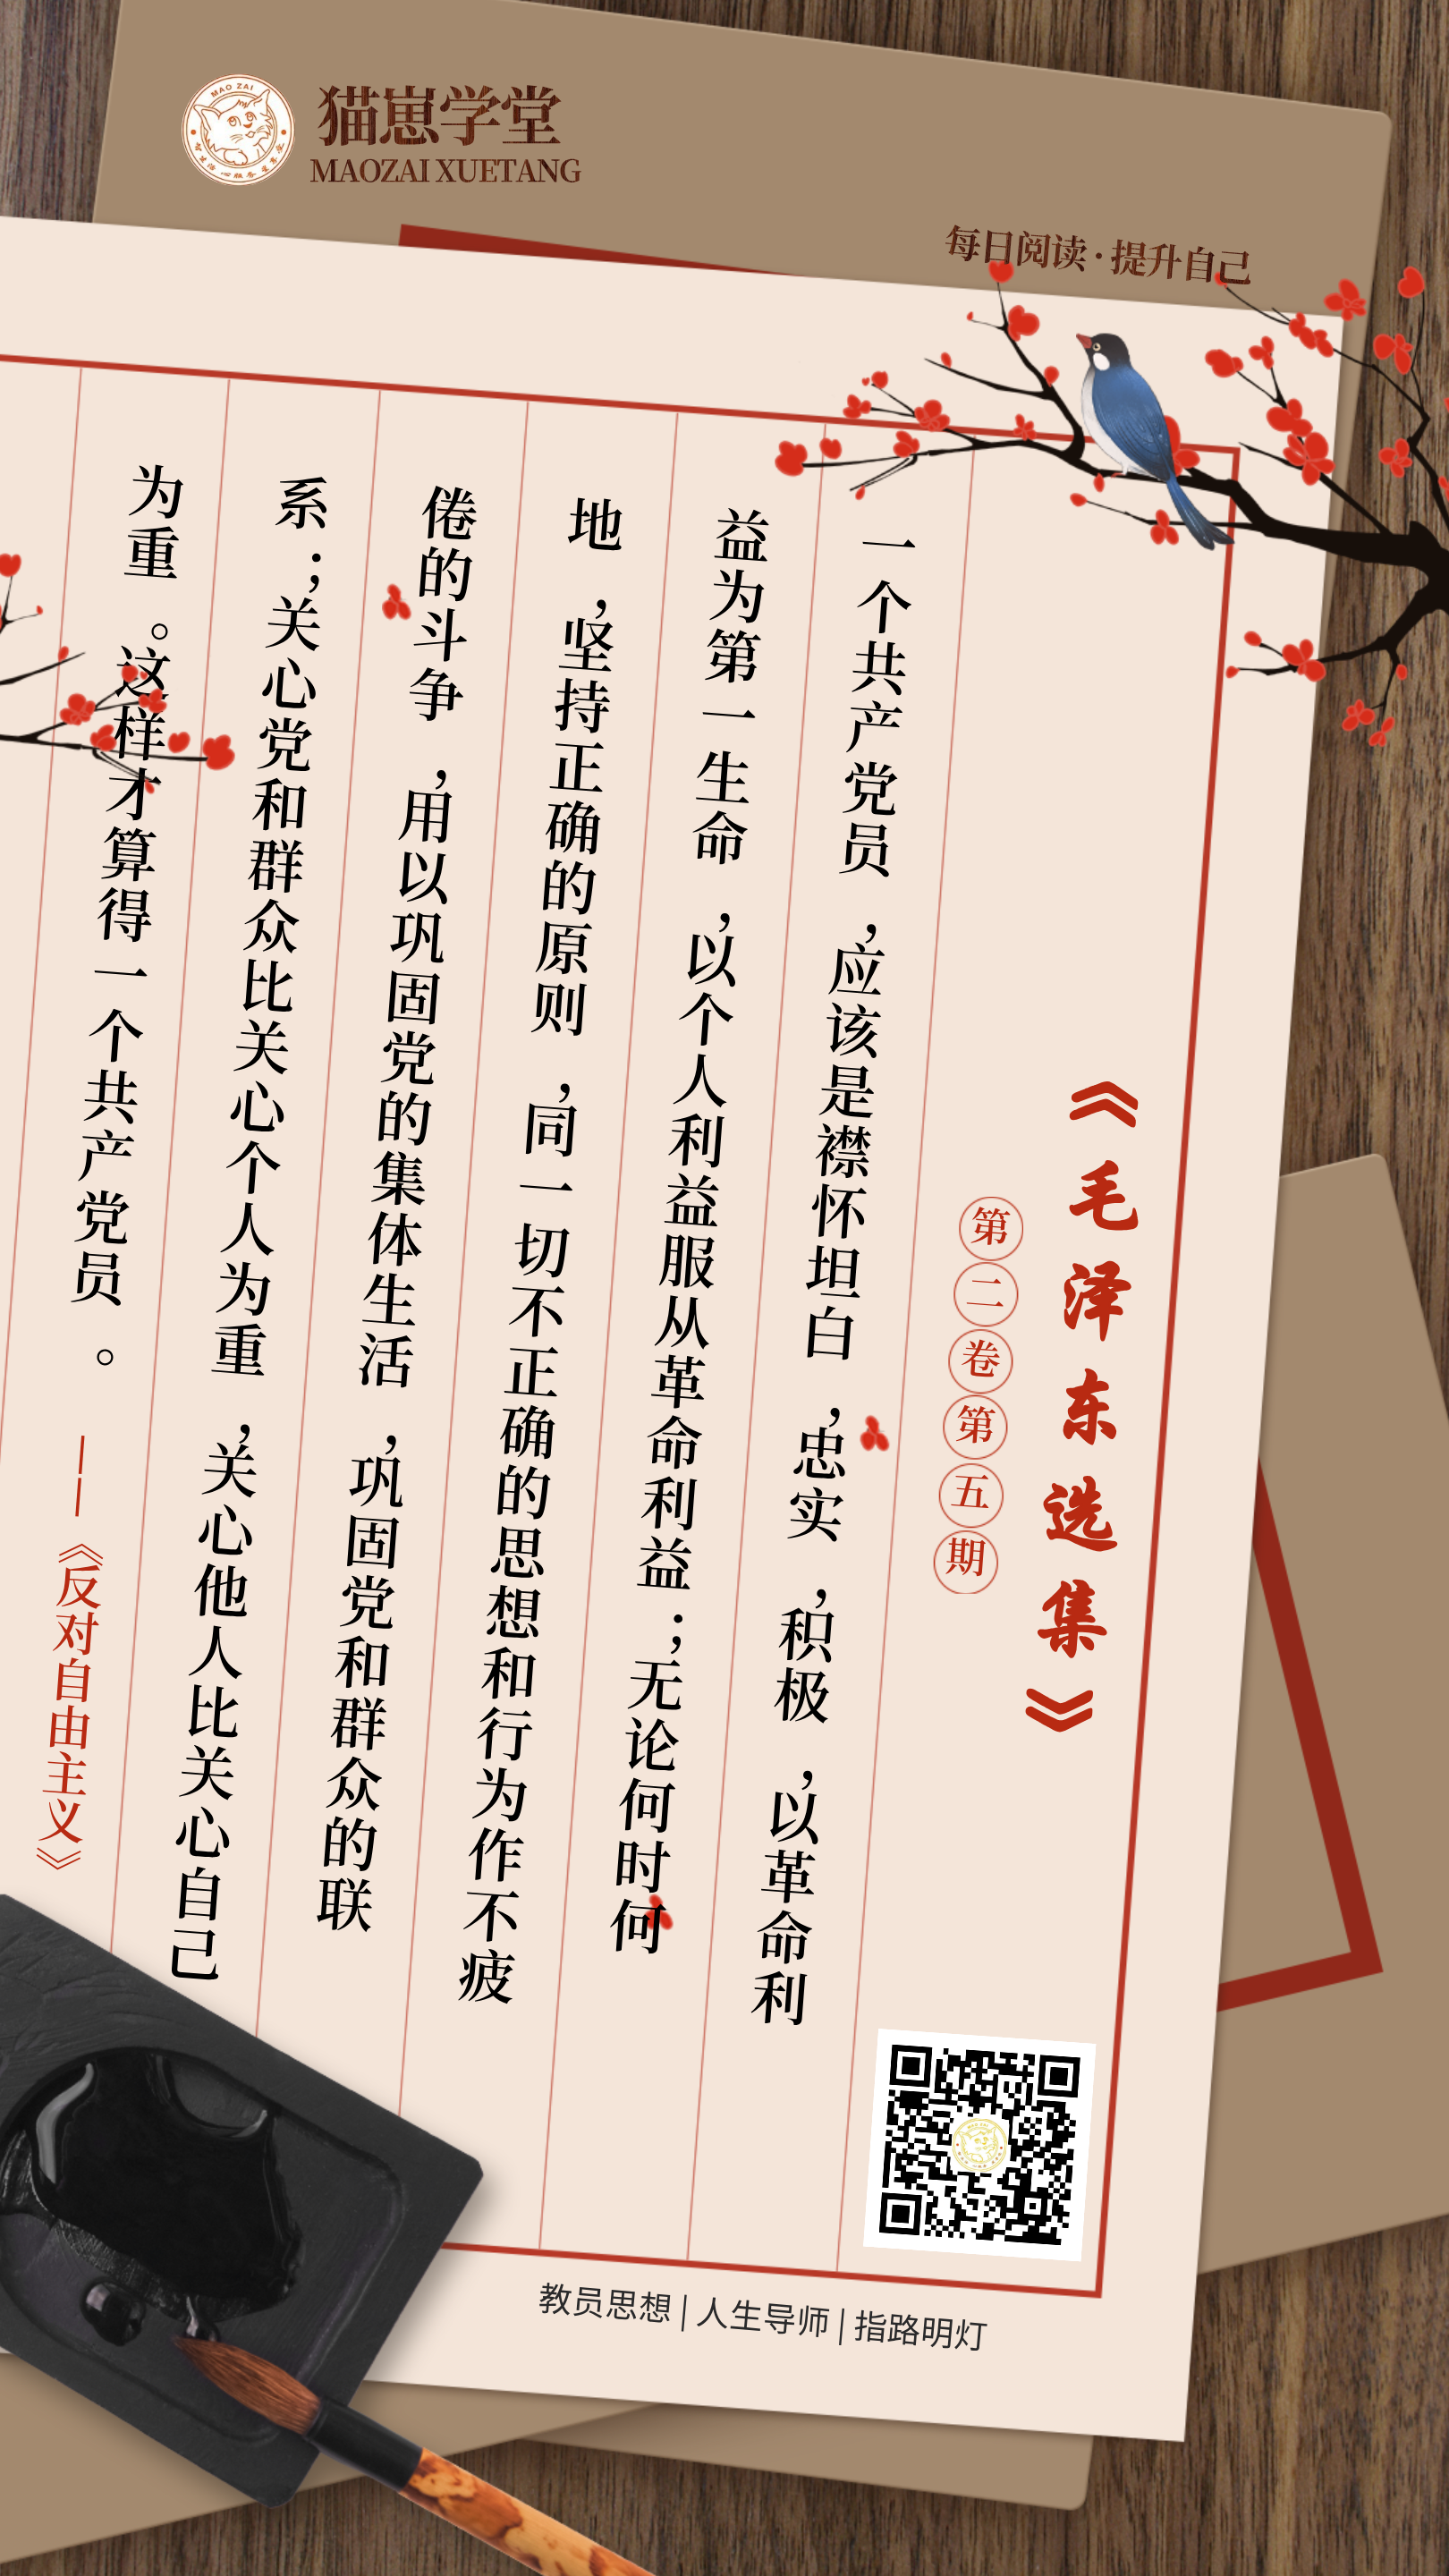 MAO ZAI
猫崽学堂
MAOZAI XUETANG
每日阅读·提升自己
《毛泽东选集》
第二卷第五期
一个共产党员，应该是襟怀坦白，忠实，积极，以革命利
益为第一生命，以个人利益服从革命利益；无论何时何
地，坚持正确的原则，同一切不正确的思想和行为作不疲
倦的斗争，用以巩固党的集体生活，巩固党和群众的联
系；关心党和群众比关心个人为重，关心他人比关心自己
为重。这样才算得一个共产党员。——《反对自由主义》
教员思想|人生导师|指路明灯